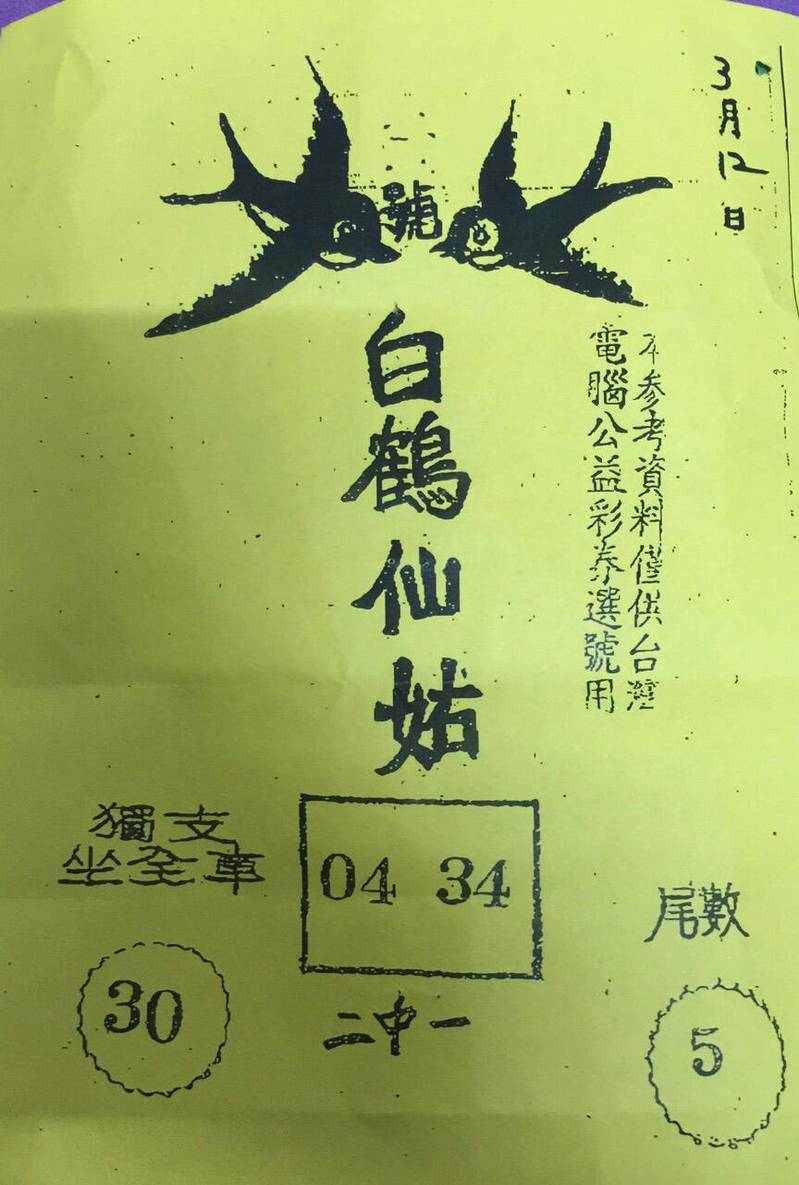 3月12日
號
白鶴仙姑
本參考資料僅供台灣
電腦公益彩券選號用
獨支
坐全車
30
04 34
二中一
尾數
5